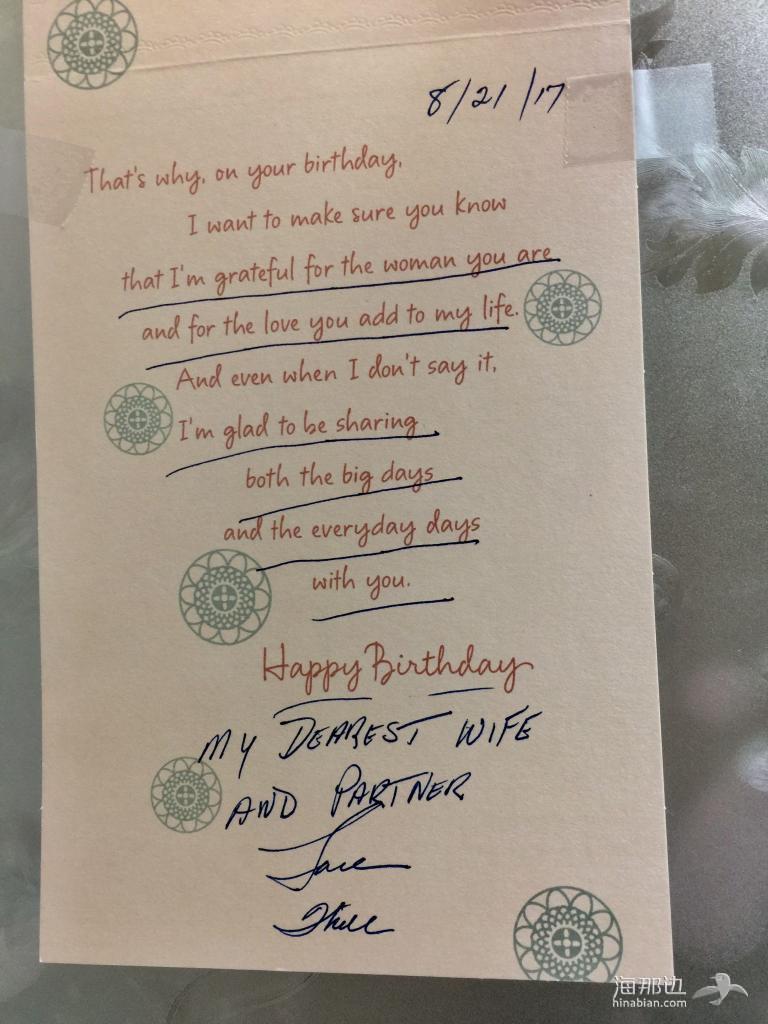 8/21/17
That's why, on your birthday,
I want to make sure you know
that I'm grateful for the woman you are
and for the love you add to my life.
And even when I don't say it,
I'm glad to be sharing
both the big days
and the everyday days
with you.
Happy Birthday
MY DEAREST WIFE
AND PARTNER
Love
海那边
hinabian.com